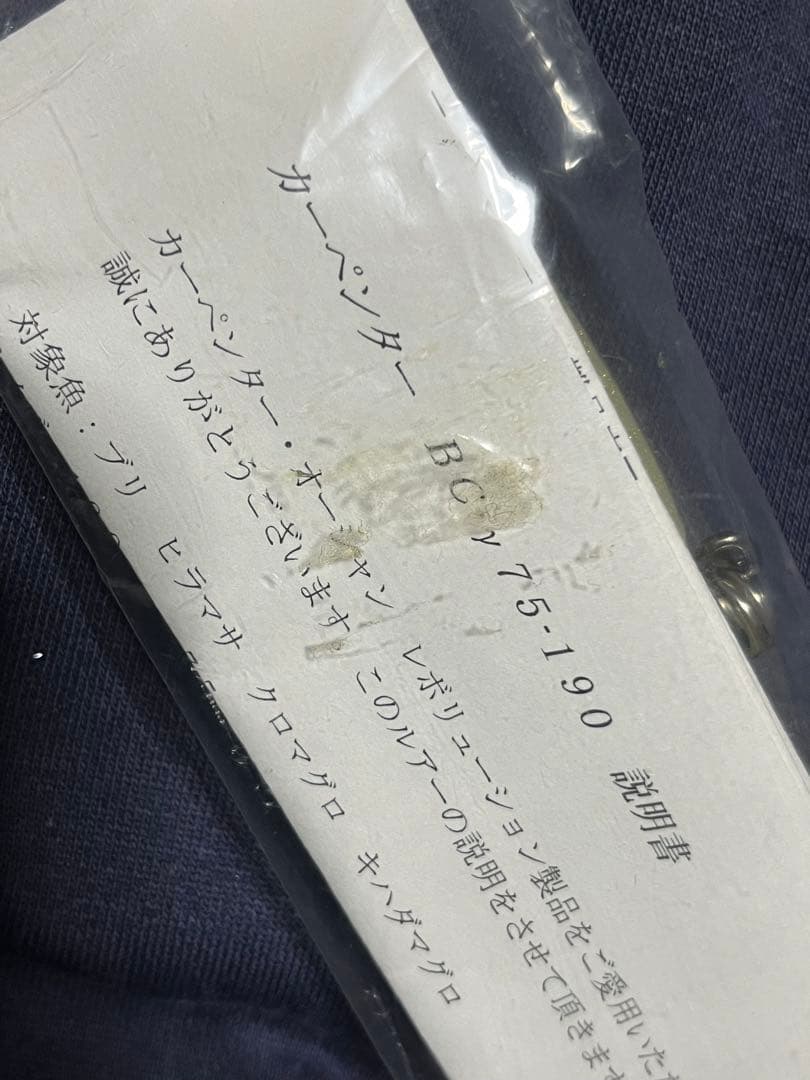 カーペンター BC γ75-190 説明書
カーペンター・オーシャン レボリューション製品をご愛用いただ
誠にありがとうございます このルアーの説明をさせて頂きませ
対象魚：ブリ ヒラマサ クロマグロ キハダマグロ